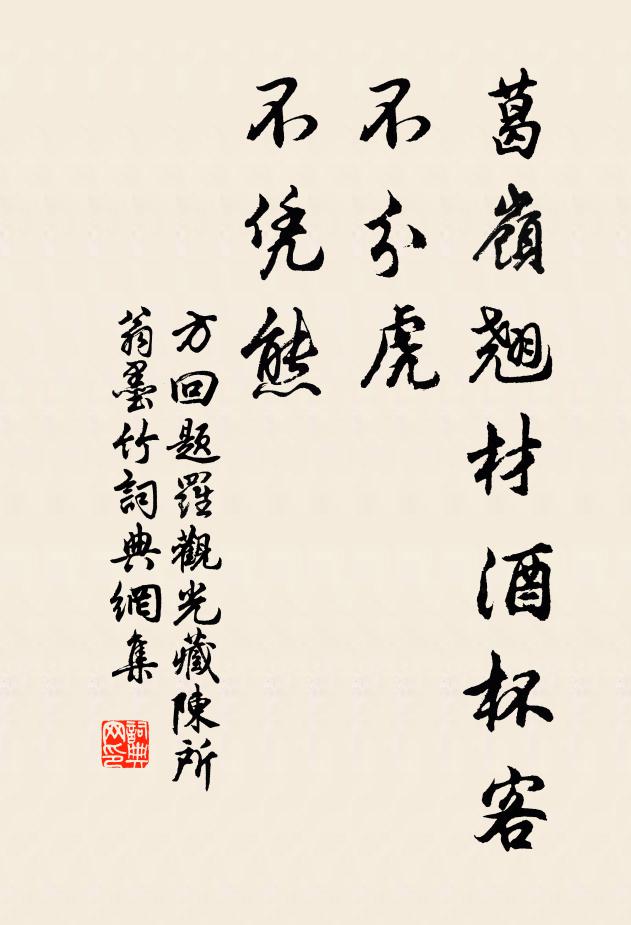 葛嶺翹材酒杯客
不分虎
不凭熊
方回題羅觀光藏陳所
翁墨竹詞典網集
詞典
网印